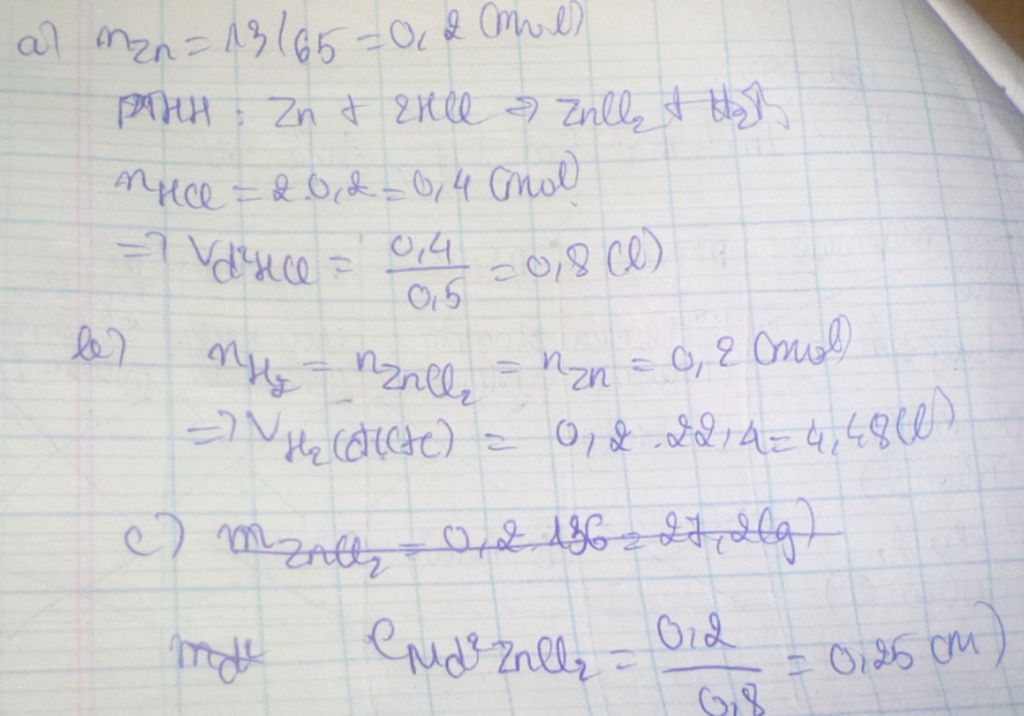 a) nZn = 13/65 = 0,2 (mol)
PTHH : Zn + 2HCl => ZnCl2 + H2↑
nHCl = 2.0,2 = 0,4 (mol)
=> Vd²HCl = 0,4/0,5 = 0,8 (l)
b) nH2 = nZnCl2 = nZn = 0,2 (mol)
=> VH2(đktc) = 0,2 . 22,4 = 4,48 (l)
c) mZnCl2 = 0,2.136 = 27,2 (g)
md² CMd²ZnCl2 = 0,2/0,8 = 0,25 (M)